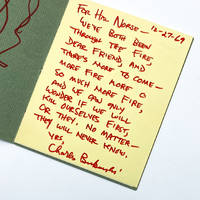 FOR HAL NORSE— 12-27-69
WE'VE BOTH BEEN
THROUGH THE FIRE
DEAR FRIEND, AND
THERE'S MORE TO COME—
MORE FIRE MORE &
SO MUCH MORE FIRE,
AND WE CAN ONLY
WONDER IF WE WILL
KILL OURSELVES FIRST,
OR THEY. NO MATTER—
THEY WILL NEVER KNEW.
YR
Charles Bukowski